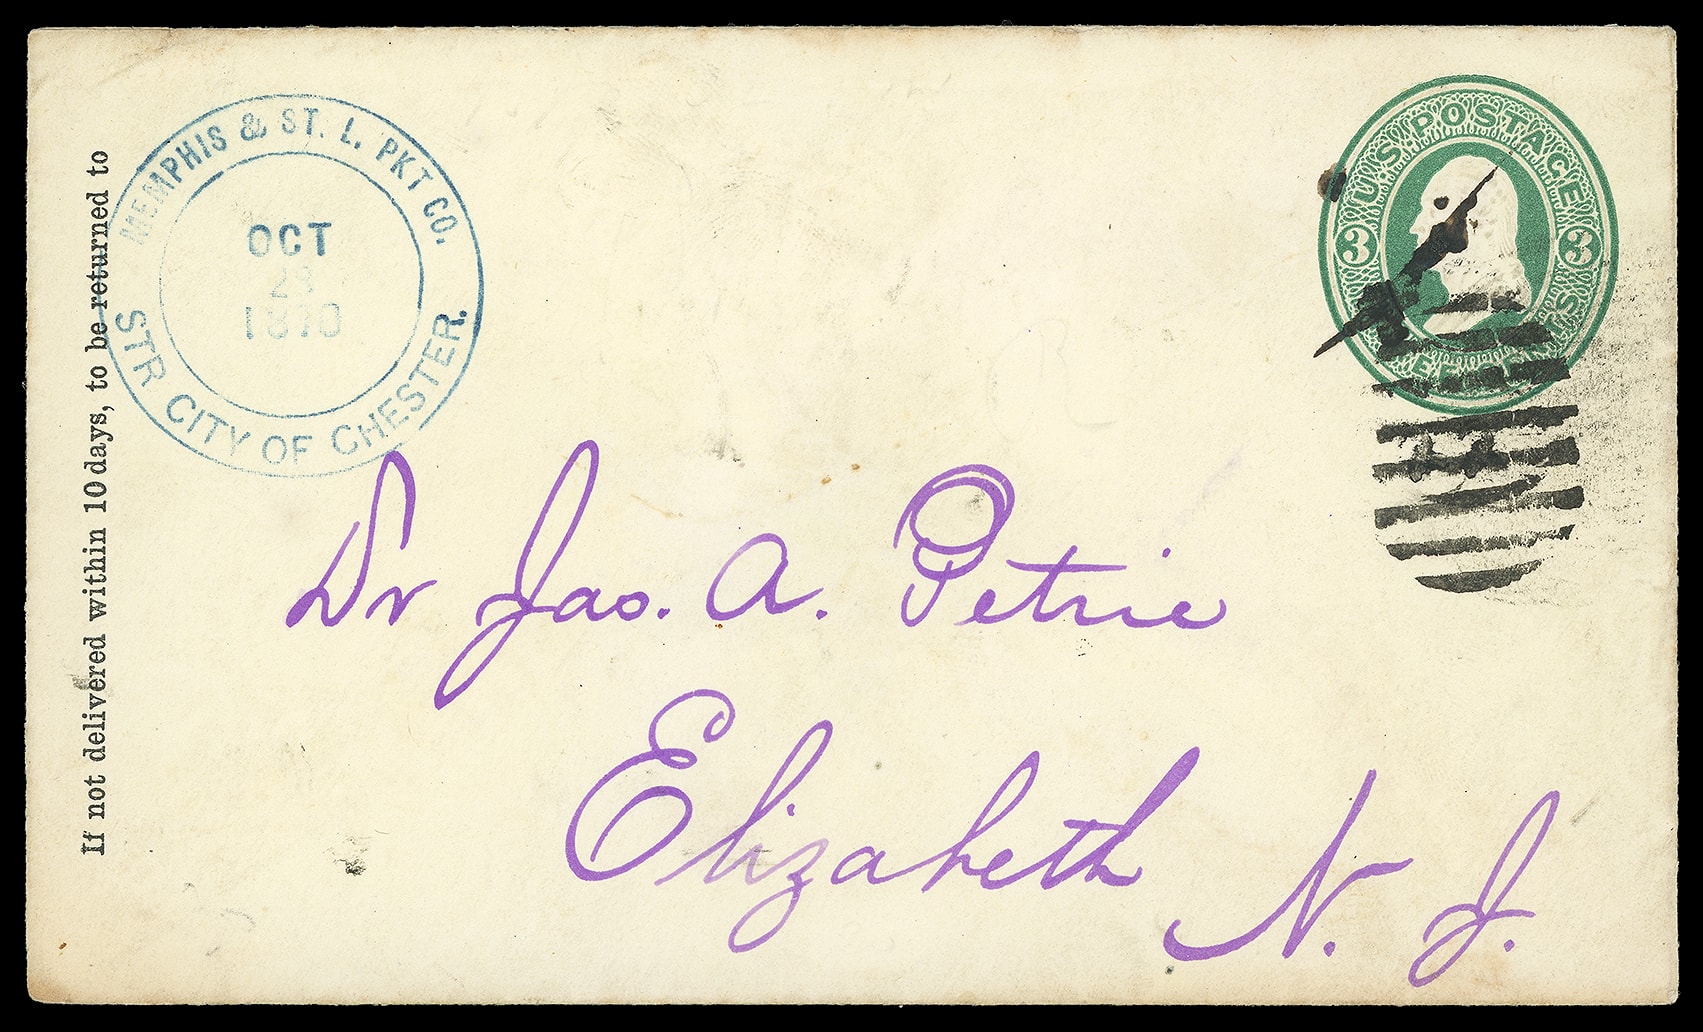 If not delivered within 10 days, to be returned to
MEMPHIS & ST. L. PKT CO.
OCT
STR CITY OF CHESTER.
U.S. POSTAGE
3 3
Dr Jas. A. Petrie
Elizabeth N. J.